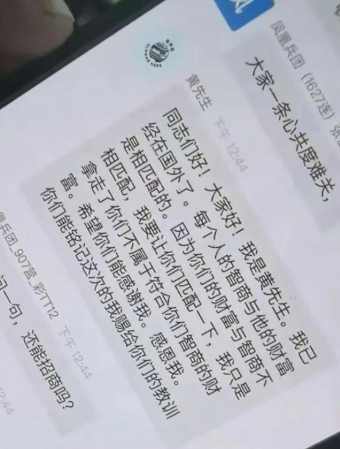 凤凰兵团（1627连）
大家一条心共度难关,
黄先生 下午 12:44
同志们好！大家好！我是黄先生。我已
经在国外了。每个人的智商与他的财富
是相匹配的。因为你们的财富与智商不
相匹配，我要让你们匹配一下，我只是
拿走了你们不属于符合你们智商的财
富。希望你们能感谢我。感恩我。
你们能铭记这次的我赐给你们的教训
凰兵团_907富_彩TT12 下午 12:44
问一句，还能招商吗?
12:44